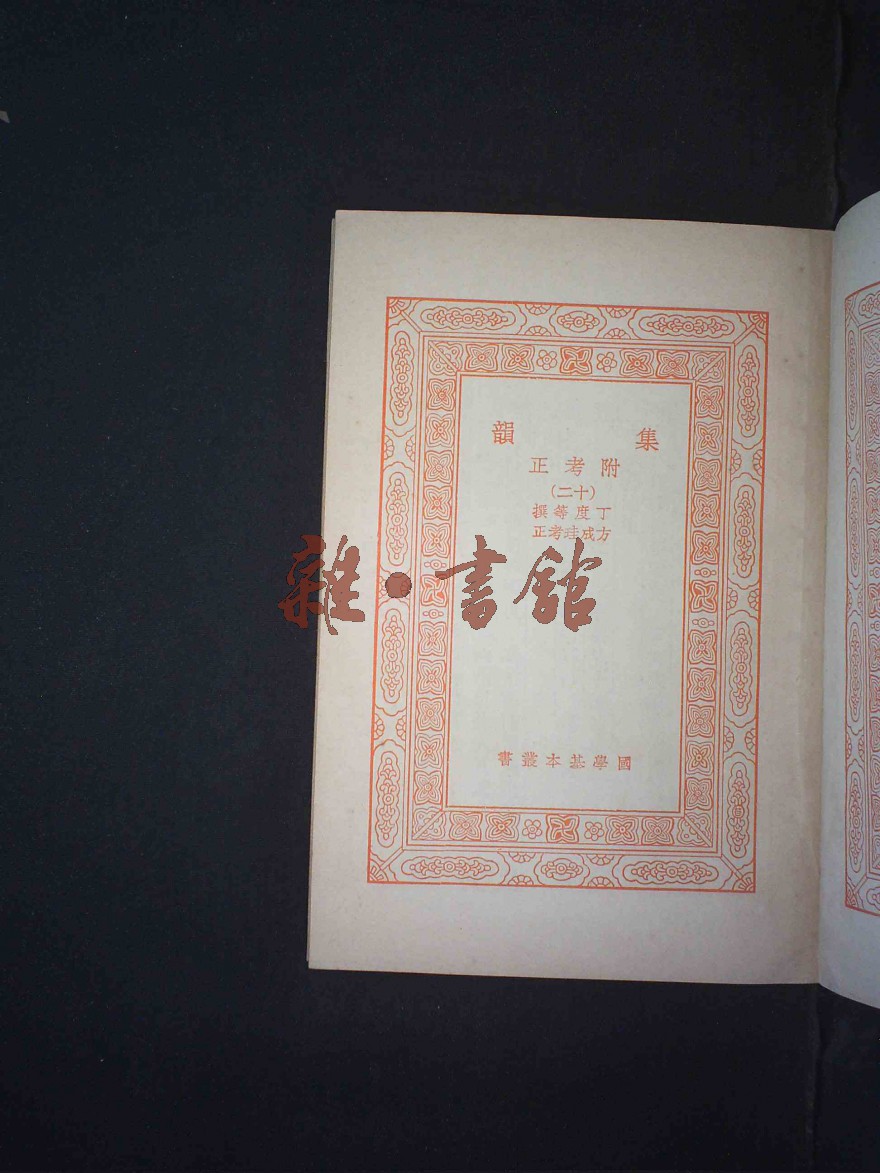 集韻
附考正
(十二)
丁度等撰
方成珪考正
雜·書館
國學基本叢書